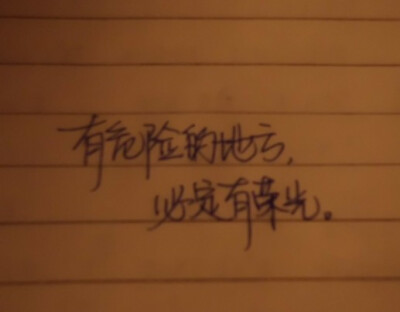 有危险的地方,
必定有荣光。